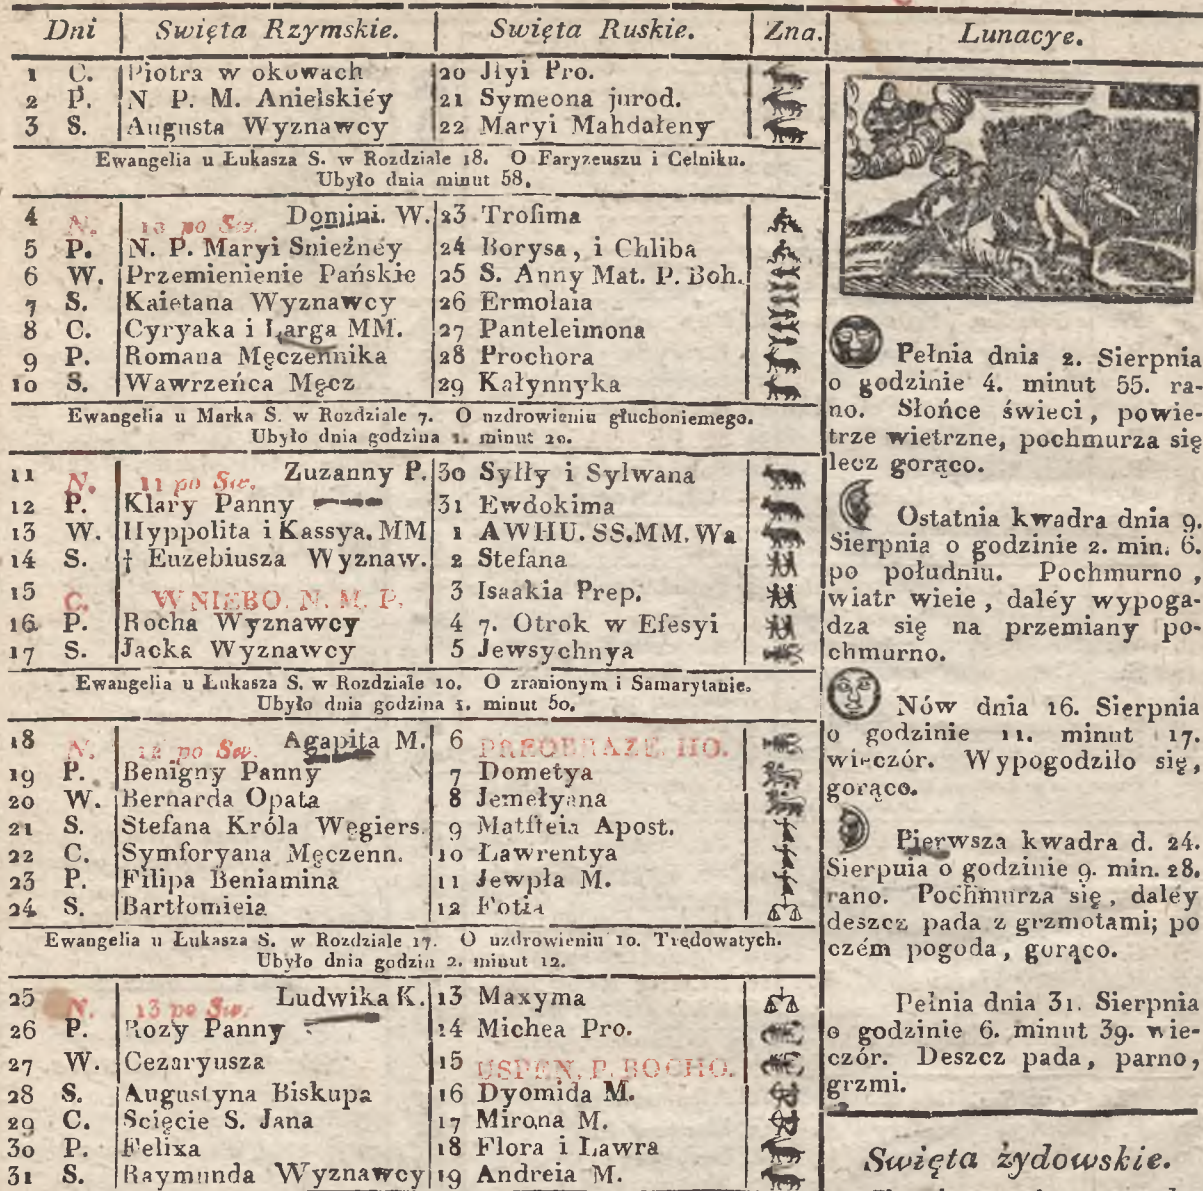 Dni Swięta Rzymskie. Swięta Ruskie. Zna.
1 C. Piotra w okowach 20 Jlyi Pro.
2 P. N. P. M. Anielskiéy 21 Symeona jurod.
3 S. Augusta Wyznawcy 22 Maryi Mahdałeny
Ewangelia u Łukasza S. w Rozdziale 18. O Faryzeuszu i Celniku.
Ubyło dnia minut 58.
4 N. 10 po Sw. Domini. W. 23 Trofima
5 P. N. P. Maryi Snieźnéy 24 Borysa, i Chliba
6 W. Przemienienie Pańskie 25 S. Anny Mat. P. Boh.
7 S. Kaietana Wyznawcy 26 Ermolaia
8 C. Cyryaka i Larga MM. 27 Panteleimona
9 P. Romana Męczennika 28 Prochora
10 S. Wawrzeńca Męcz 29 Kałynnyka
Ewangelia u Marka S. w Rozdziale 7. O uzdrowieniu głuchoniemego.
Ubyło dnia godzina 1. minut 20.
11 N. 11 po Sw. Zuzanny P. 30 Syłły i Sylwana
12 P. Klary Panny 31 Ewdokima
13 W. Hyppolita i Kassya. MM 1 AWHU. SS. MM. Wa
14 S. † Euzebiusza Wyznaw. 2 Stefana
15 C. W NIEBO. N. M. P. 3 Isaakia Prep.
16 P. Rocha Wyznawcy 4 7. Otrok w Efesyi
17 S. Jacka Wyznawcy 5 Jewsychnya
Ewangelia u Łukasza S. w Rozdziale 10. O zranionym i Samarytanie.
Ubyło dnia godzina 1. minut 50.
18 N. 12 po Sw. Agapita M. 6 PREOBRAZE. HO.
19 P. Benigny Panny 7 Dometya
20 W. Bernarda Opata 8 Jemełyana
21 S. Stefana Króla Węgiers. 9 Matfteia Apost.
22 C. Symforyana Męczenn. 10 Ławrentya
23 P. Filipa Beniamina 11 Jewpła M.
24 S. Bartłomieia 12 Fotia
Ewangelia u Łukasza S. w Rozdziale 17. O uzdrowieniu 10. Trędowatych.
Ubyło dnia godzin 2. minut 12.
25 N. 13 po Sw. Ludwika K. 13 Maxyma
26 P. Rozy Panny 14 Michea Pro.
27 W. Cezaryusza 15 USPEN. P. BOCHO.
28 S. Augustyna Biskupa 16 Dyomida M.
29 C. Scięcie S. Jana 17 Mirona M.
30 P. Felixa 18 Flora i Lawra
31 S. Raymunda Wyznawcy 19 Andreia M.
Lunacye.
Pełnia dnia 2. Sierpnia
o godzinie 4. minut 55. ra-
no. Słońce świeci, powie-
trze wietrzne, pochmurza się
lecz gorąco.
Ostatnia kwadra dnia 9.
Sierpnia o godzinie 2. min. 6.
po południu. Pochmurno,
wiatr wieie, daléy wypoga-
dza się na przemiany po-
chmurno.
Nów dnia 16. Sierpnia
o godzinie 11. minut 17.
wieczór. Wypogodziło się,
gorąco.
Pierwsza kwadra d. 24.
Sierpuia o godzinie 9. min. 28.
rano. Pochmurza się, daléy
deszcz pada z grzmotami; po
czém pogoda, gorąco.
Pełnia dnia 31. Sierpnia
o godzinie 6. minut 39. wie-
czór. Deszcz pada, parno,
grzmi.
Swięta żydowskie.